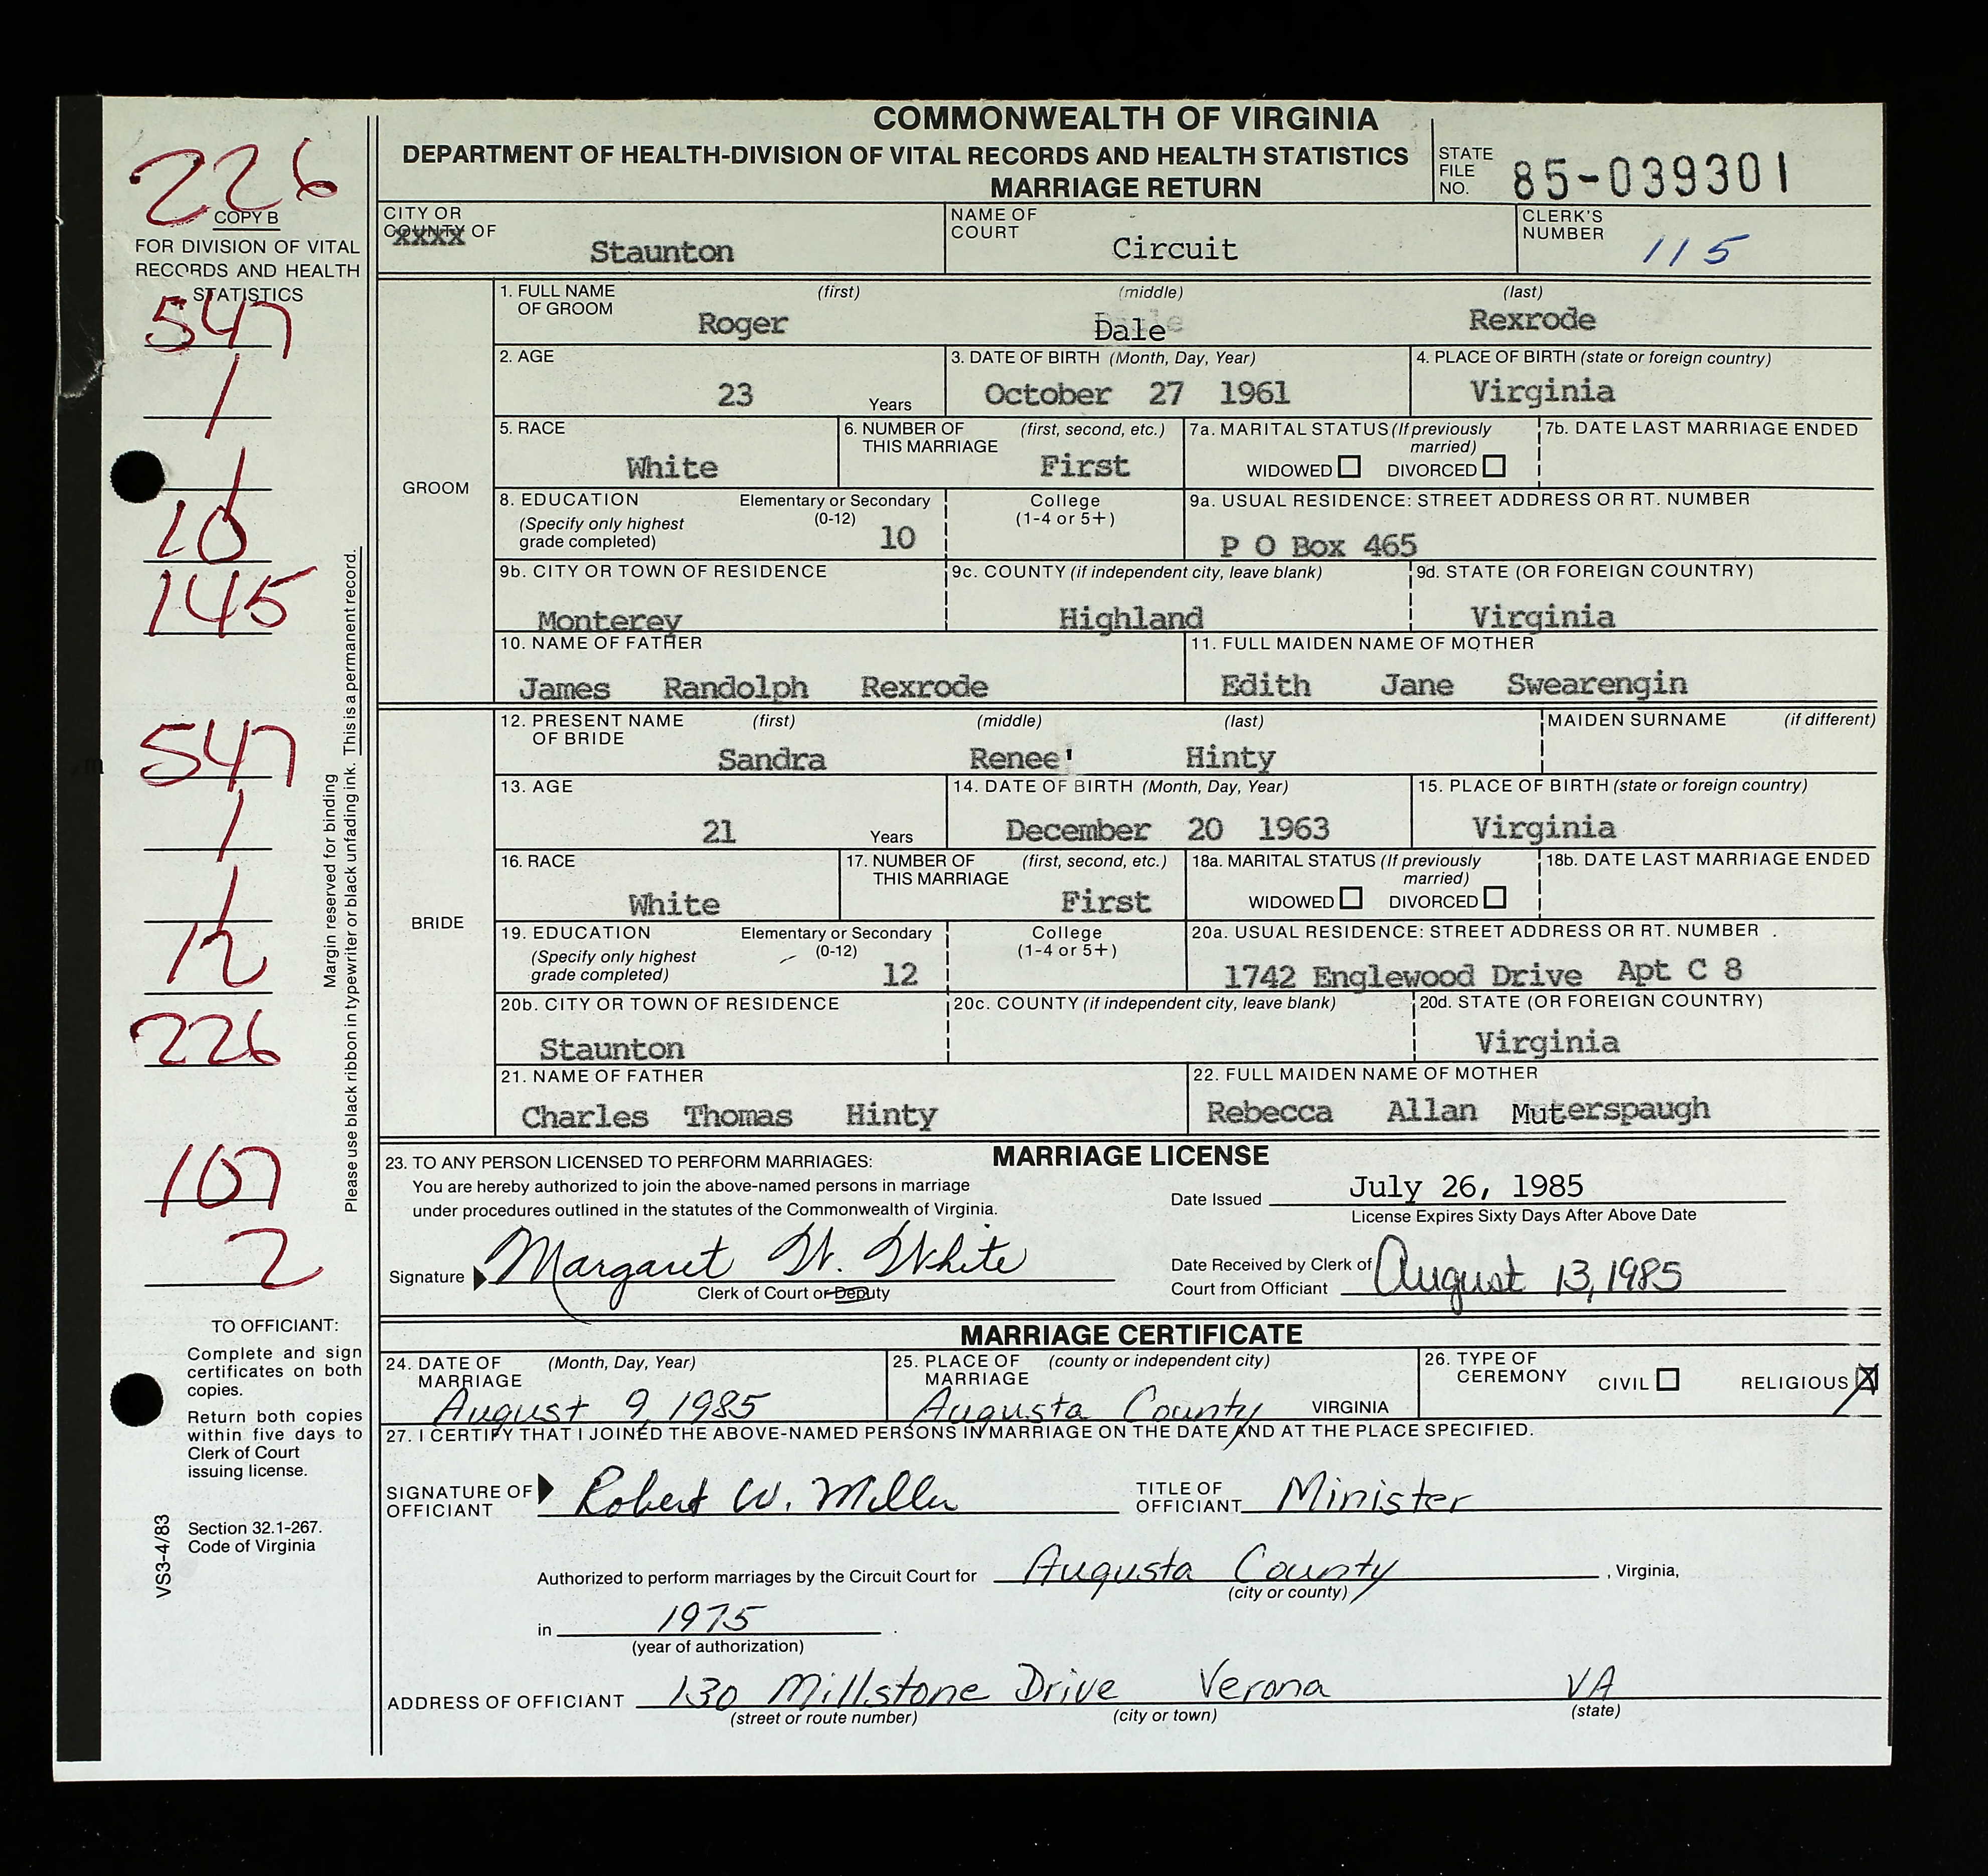 COMMONWEALTH OF VIRGINIA
DEPARTMENT OF HEALTH-DIVISION OF VITAL RECORDS AND HEALTH STATISTICS
MARRIAGE RETURN
STATE FILE NO. 85-039301
226
COPY B
FOR DIVISION OF VITAL
RECORDS AND HEALTH
STATISTICS
547
1
1
10
145
547
1
1
12
226
107
2
Margin reserved for binding
Please use black ribbon in typewriter or black unfading ink. This is a permanent record.
TO OFFICIANT:
Complete and sign
certificates on both
copies.
Return both copies
within five days to
Clerk of Court
issuing license.
Section 32.1-267.
Code of Virginia
VS3-4/83
CITY OR COUNTY OF Staunton
NAME OF COURT Circuit
CLERK'S NUMBER 115
GROOM
1. FULL NAME OF GROOM (first) (middle) (last)
Roger Dale Rexrode
2. AGE 23 Years
3. DATE OF BIRTH (Month, Day, Year) October 27 1961
4. PLACE OF BIRTH (state or foreign country) Virginia
5. RACE White
6. NUMBER OF THIS MARRIAGE (first, second, etc.) First
7a. MARITAL STATUS (If previously married) WIDOWED DIVORCED
7b. DATE LAST MARRIAGE ENDED
8. EDUCATION (Specify only highest grade completed) Elementary or Secondary (0-12) 10
College (1-4 or 5+)
9a. USUAL RESIDENCE: STREET ADDRESS OR RT. NUMBER
P O Box 465
9b. CITY OR TOWN OF RESIDENCE Monterey
9c. COUNTY (if independent city, leave blank) Highland
9d. STATE (OR FOREIGN COUNTRY) Virginia
10. NAME OF FATHER
James Randolph Rexrode
11. FULL MAIDEN NAME OF MOTHER
Edith Jane Swearengin
BRIDE
12. PRESENT NAME OF BRIDE (first) (middle) (last)
Sandra Renee' Hinty
MAIDEN SURNAME (if different)
13. AGE 21 Years
14. DATE OF BIRTH (Month, Day, Year) December 20 1963
15. PLACE OF BIRTH (state or foreign country) Virginia
16. RACE White
17. NUMBER OF THIS MARRIAGE (first, second, etc.) First
18a. MARITAL STATUS (If previously married) WIDOWED DIVORCED
18b. DATE LAST MARRIAGE ENDED
19. EDUCATION (Specify only highest grade completed) Elementary or Secondary (0-12) 12
College (1-4 or 5+)
20a. USUAL RESIDENCE: STREET ADDRESS OR RT. NUMBER
1742 Englewood Drive Apt C 8
20b. CITY OR TOWN OF RESIDENCE Staunton
20c. COUNTY (if independent city, leave blank)
20d. STATE (OR FOREIGN COUNTRY) Virginia
21. NAME OF FATHER
Charles Thomas Hinty
22. FULL MAIDEN NAME OF MOTHER
Rebecca Allan Muterspaugh
MARRIAGE LICENSE
23. TO ANY PERSON LICENSED TO PERFORM MARRIAGES:
You are hereby authorized to join the above-named persons in marriage
under procedures outlined in the statutes of the Commonwealth of Virginia.
Date Issued July 26, 1985
License Expires Sixty Days After Above Date
Signature Margaret W. White
Clerk of Court or Deputy
Date Received by Clerk of
Court from Officiant August 13, 1985
MARRIAGE CERTIFICATE
24. DATE OF MARRIAGE (Month, Day, Year) August 9, 1985
25. PLACE OF MARRIAGE (county or independent city) Augusta County VIRGINIA
26. TYPE OF CEREMONY CIVIL RELIGIOUS X
27. I CERTIFY THAT I JOINED THE ABOVE-NAMED PERSONS IN MARRIAGE ON THE DATE AND AT THE PLACE SPECIFIED.
SIGNATURE OF OFFICIANT Robert W. Miller
TITLE OF OFFICIANT Minister
Authorized to perform marriages by the Circuit Court for Augusta County, Virginia,
(city or county)
in 1975.
(year of authorization)
ADDRESS OF OFFICIANT 130 Millstone Drive Verona VA
(street or route number) (city or town) (state)